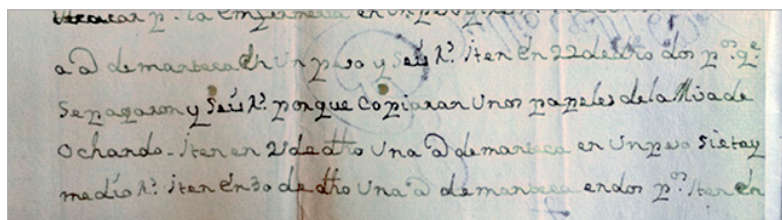 p.ª la enfermeria en un peso y
a @ de manteca en Un peso y seis r.ˢ iten en 22 de dho dos p.ᵒˢ q.ᵉ
se pagaron y seis r.ˢ porque copiaran Unos papeles de la Misa de
Ochando - iten en 21 de dho Una @ de manteca en Un peso siete y
medio r.ˢ iten en 30 de dho Una @ de manteca en dos p.ᵒˢ iten en